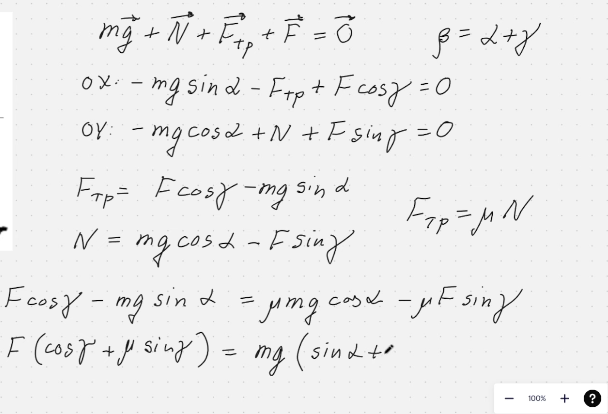 mg⃗ + N⃗ + F⃗тр + F⃗ = 0⃗    β = α + γ
ox: - mg sin α - Fтр + F cos γ = 0
oy: - mg cos α + N + F sin γ = 0
Fтр = F cos γ - mg sin α
Fтр = μ N
N = mg cos α - F sin γ
F cos γ - mg sin α = μ mg cos α - μ F sin γ
F (cos γ + μ sin γ) = mg (sin α +
− 100% + ?